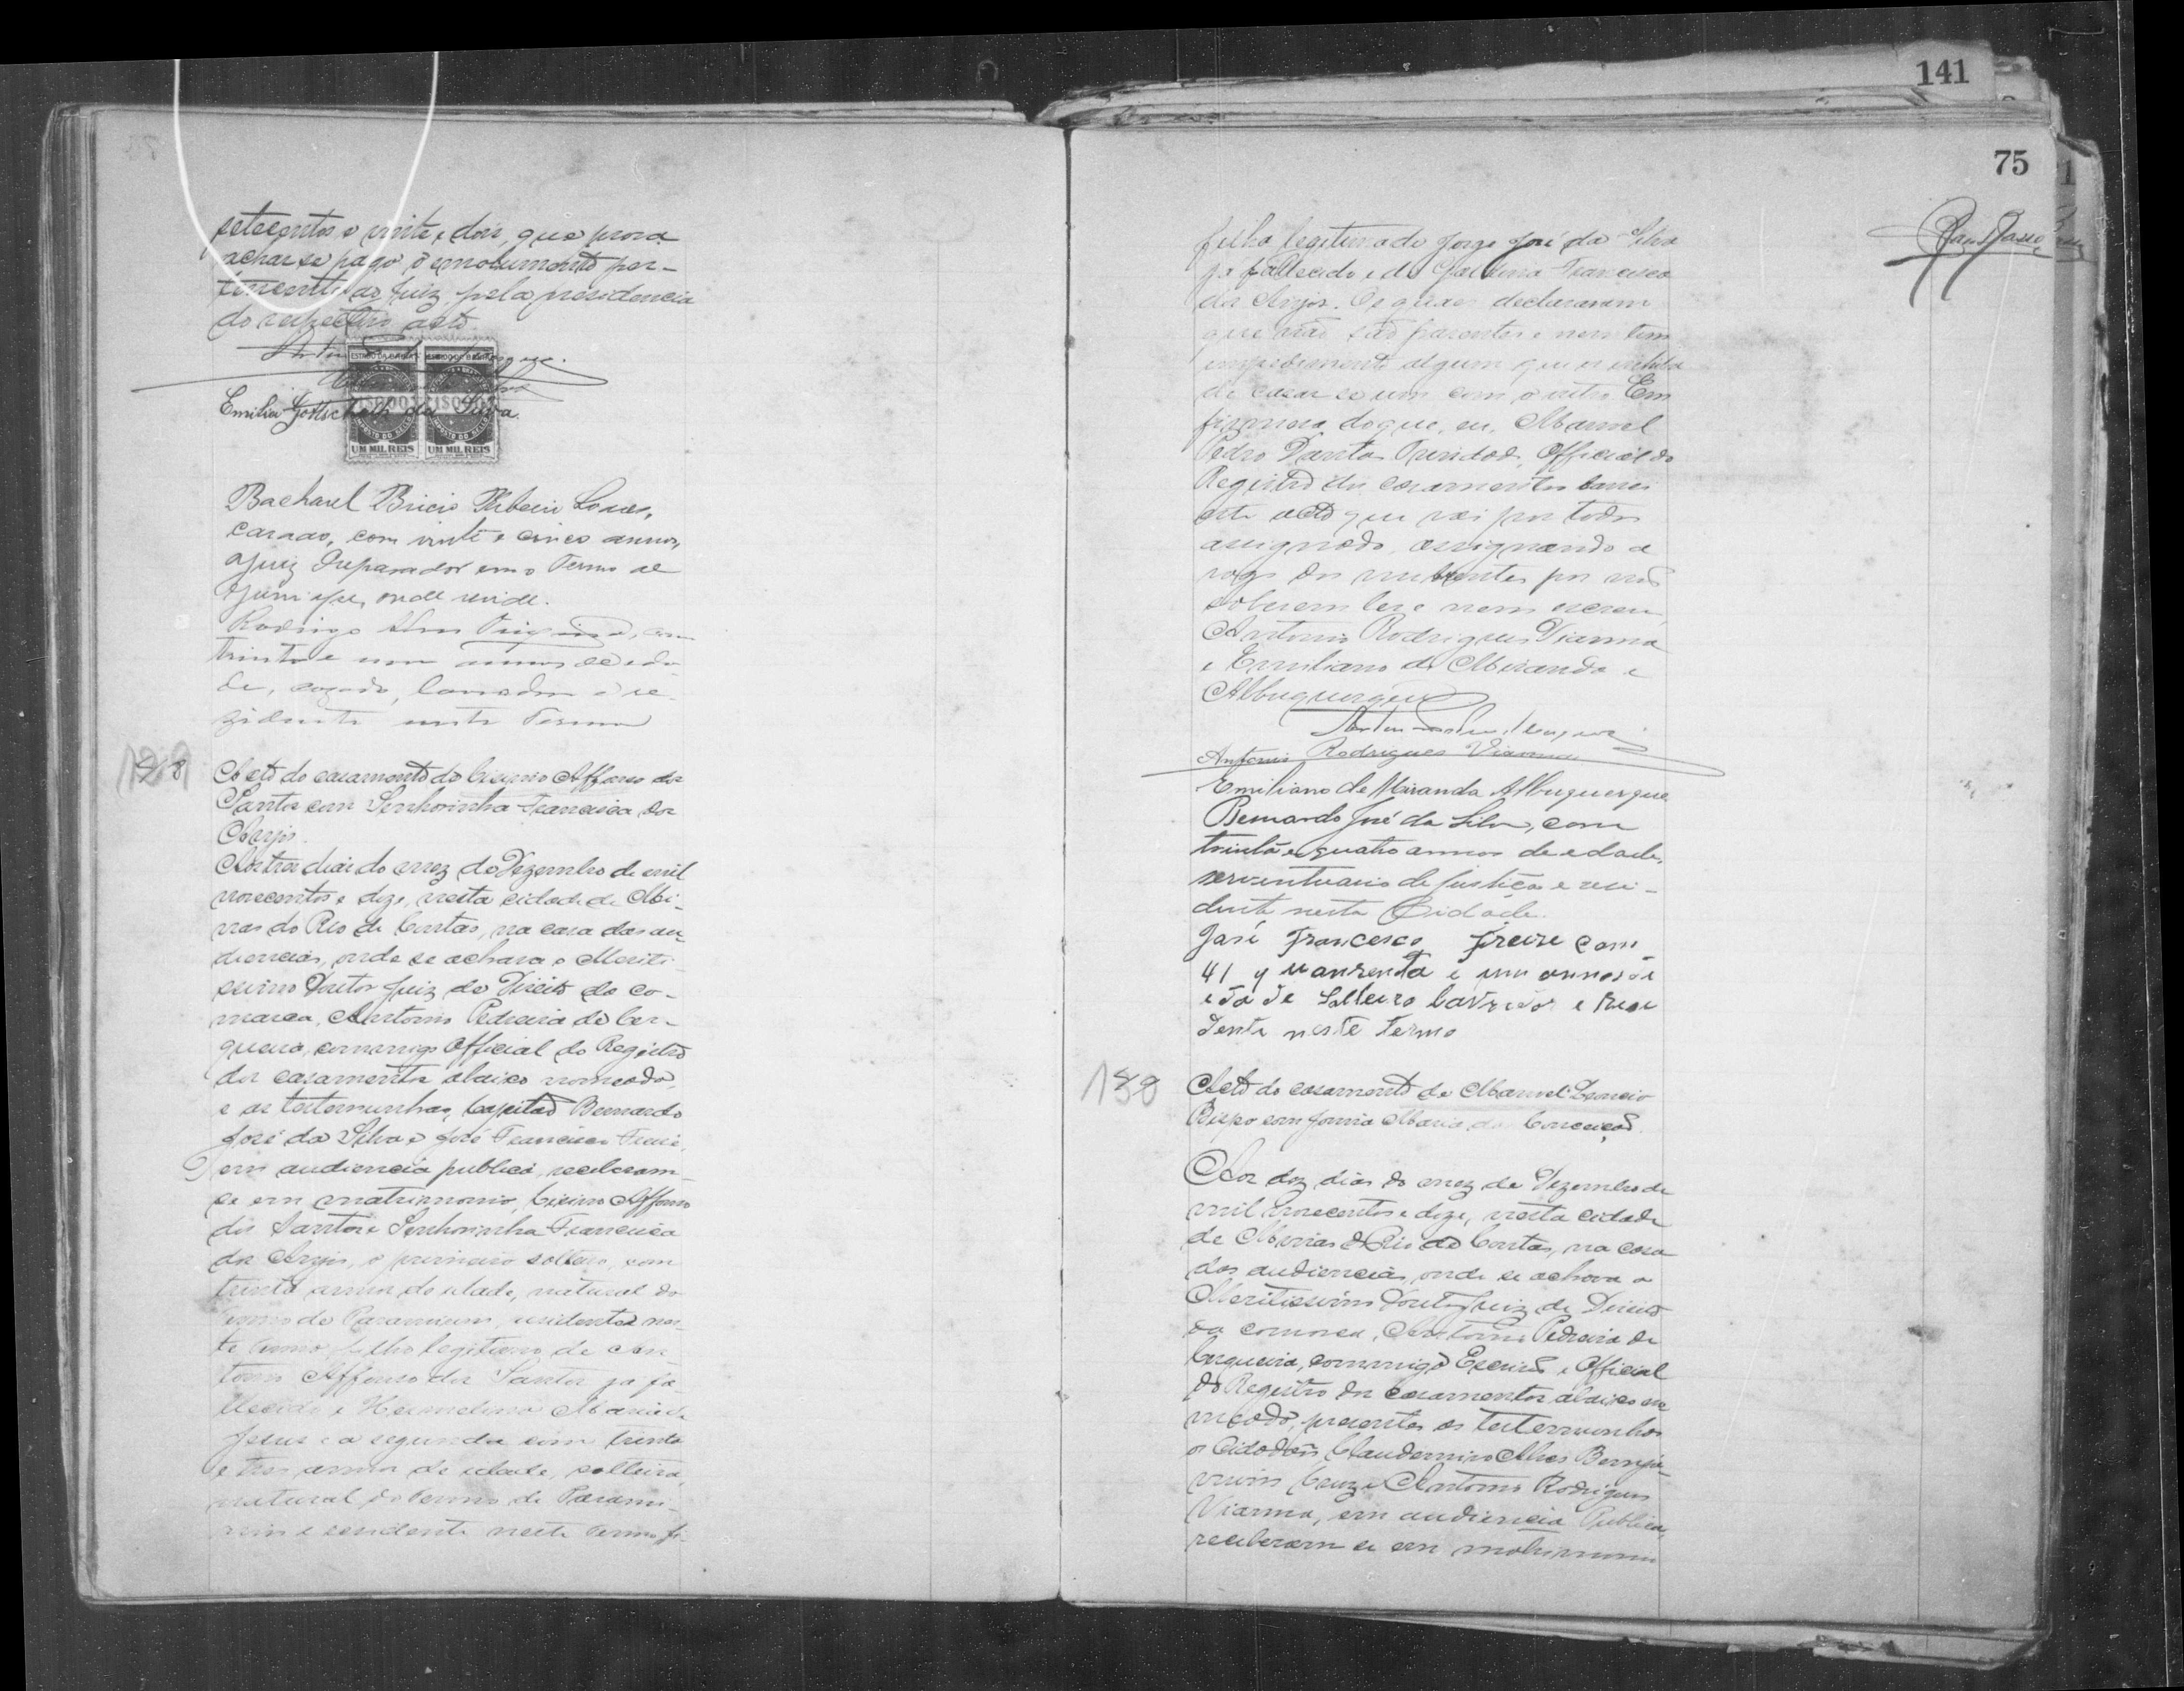 setecentos e vinte e dois, que prova
achar-se pago o emolumento per-
tencente ao Juiz, pela presidencia
do respectivo acto.
ESTADO DA BAHIA ESTADO DA BAHIA
IMPOSTO DO SELLO IMPOSTO DO SELLO
UM MIL REIS UM MIL REIS
Emilia Gottschalk da Silva
Bacharel Bricio Ribeiro Soares,
casado, com vinte e cinco annos,
Juiz Preparador em o Termo de
onde reside.
Rodrigo Alves com
trinta e um annos de eda
de, casado, lavrador e re-
zidente neste Termo
Acto do casamento de Cicero Affonso dos
Santos com Senhorinha Francisca dos
Anjos.
Aos tres dias do mez de Dezembro de mil
novecentos e doze, nesta cidade de Mi-
nas do Rio de Contas, na casa das au-
diencias, onde se achava o Meriti-
ssimo Doutor Juiz de Direito da co-
marca, Antonio Pedreira de Cer-
queira, commigo Official do Registro
dos casamentos abaixo nomeado,
e as testemunhas, Capitão Bernardo
José da Silva e José Francisco Freire,
em audiencia publica, receberam-
se em matrimonio, Cicero Affonso
dos Santos e Senhorinha Francisca
dos Anjos, o primeiro solteiro, com
trinta annos de edade, natural do
Termo de Paramirim, residente nes-
te termo, filho legitimo de An-
tonio Affonso dos Santos ja fa-
llecido e Hermelina Maria de
Jesus e a segunda com trinta
e tres annos de edade, solteira,
natural do Termo de Parami-
rim e residente neste Termo, fi-
141
75
filha legitima de Jorge José da Silva
ja fallecido e de Francisca
dos Anjos. Os quaes declararam
que não são parentes e nem tem
impedimento algum que os inhiba
de casar-se um com o outro. Em
firmeza do que, eu, Manoel
Pedro Dantas Trindade, Official do
Registro dos casamentos lavrei
este acto que vai por todos
assignado, assignando a
rogo dos nubentes por não
saberem ler e nem escrever
Antonio Rodrigues Vianna
e Emiliano de Miranda e
Albuquerque
Antonio Rodrigues Vianna
Emiliano de Miranda Albuquerque
Bernardo José da Silva, com
trinta e quatro annos de edade,
serventuario de Justiça e resi-
dente nesta Cidade.
José Francisco Freire com
41 quanrenta e um annos de
edade Solteiro lavrador e resi
dente neste Termo
Acto do casamento de Manoel Leoncio
Bispo com Joana Maria da Conceição.
Aos dez dias do mez de Dezembro de
mil novecentos e doze, nesta cidade
de Minas do Rio de Contas, na casa
das audiencias, onde se achava o
Meritissimo Doutor Juiz de Direito
da comarca, Antonio Pedreira de
Cerqueira, commigo Escrivão e Official
do Registro dos casamentos abaixo no
meado, presentes as testemunhas
os Cidadãos Claudemiro Alves
Cruz e Antonio Rodrigues
Vianna, em audiencia Publica,
receberam se em matrimonio